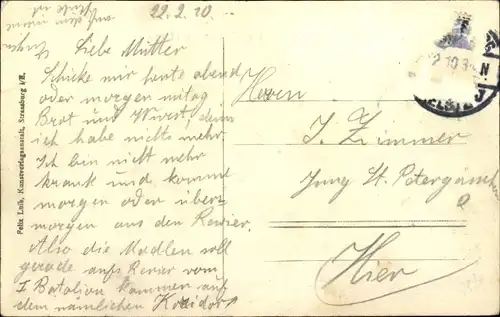 22.2.10.
Liebe Mutter
Schicke mir heute abend
oder morgen mitag
Brot und Wurst, denn
ich habe nichts mehr.
Ich bin nicht mehr
krank und komme
morgen oder über-
morgen aus den Revier.
Also die Madlen soll
gerade aufs Revier vom
I Batalion kommen auf
dem nämlichen Koridor
Felix Luib, Kunstverlagsanstalt, Strassburg i/E.
Herrn
J. Zimmer
Jung St. Petergässchen
Hier